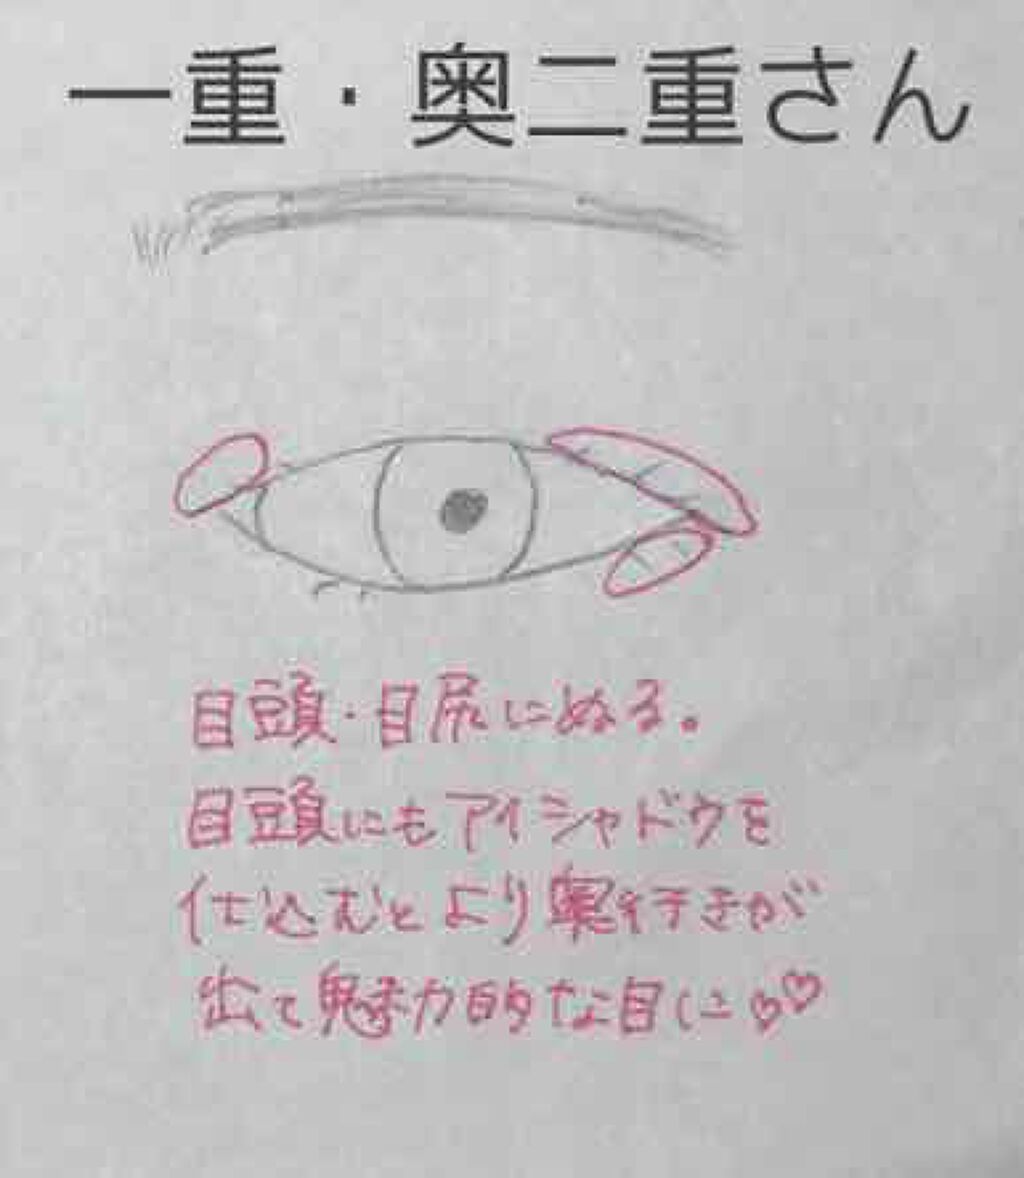 一重・奥二重さん
目頭・目尻にぬる。
目頭にもアイシャドウを
仕込むとより奥行きが
出て魅力的な目に♡♡